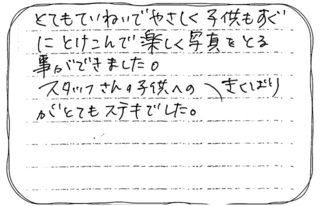 とてもていねいでやさしく子供もすぐ
にとけこんで楽しく写真をとる
事ができました。
スタッフさんの子供への きくばり
がとてもステキでした。